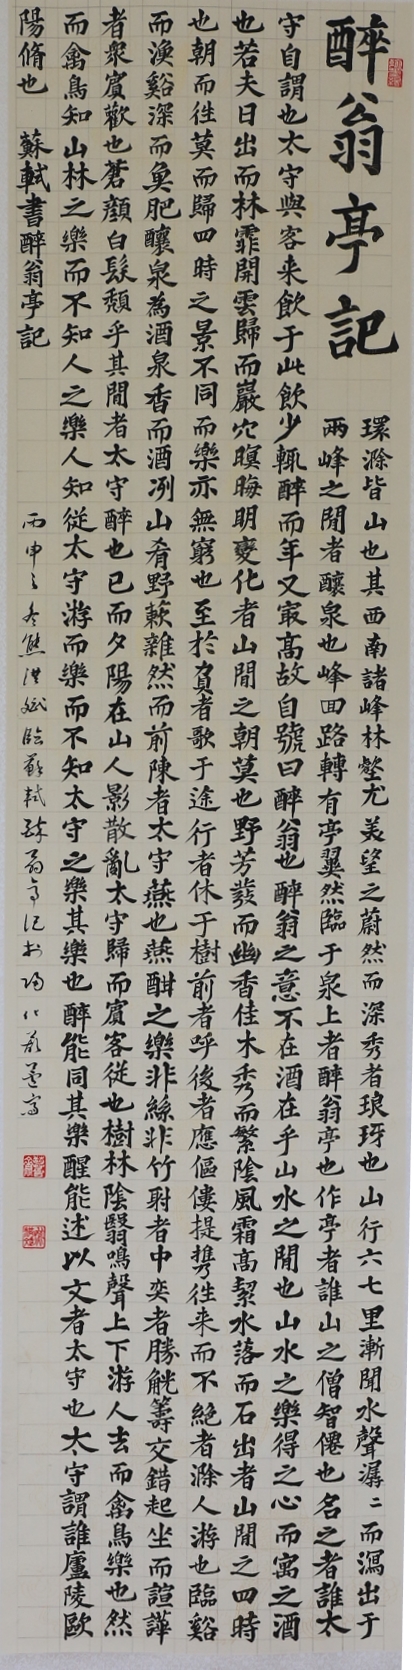 醉翁亭記
環滁皆山也其西南諸峰林壑尤美望之蔚然而深秀者琅玡也山行六七里漸聞水聲潺〻而瀉出于
兩峰之閒者釀泉也峰回路轉有亭翼然臨于泉上者醉翁亭也作亭者誰山之僧智僊也名之者誰太
守自謂也太守與客来飲于此飲少輒醉而年又寂高故自號曰醉翁也醉翁之意不在酒在乎山水之閒也山水之樂得之心而寓之酒
也若夫日出而林霏開雲歸而巖穴暝晦明變化者山閒之朝莫也野芳發而幽香佳木秀而繁陰風霜高絜水落而石出者山閒之四時
也朝而往莫而歸四時之景不同而樂亦無窮也至於負者歌于途行者休于樹前者呼後者應傴僂提攜往来而不絕者滁人游也臨谿
而漁谿深而魚肥釀泉為酒泉香而酒冽山肴野蔌雜然而前陳者太守燕也燕酣之樂非絲非竹射者中奕者勝觥籌交錯起坐而諠譁
者衆賓歡也蒼顏白髮頹乎其閒者太守醉也已而夕陽在山人影散亂太守歸而賓客從也樹林陰翳鳴聲上下游人去而禽鳥樂也然
而禽鳥知山林之樂而不知人之樂人知從太守游而樂而不知太守之樂其樂也醉能同其樂醒能述以文者太守也太守謂誰廬陵歐
陽脩也 蘇軾書醉翁亭記
丙申之冬熊洪斌臨蘇軾醉翁亭記於